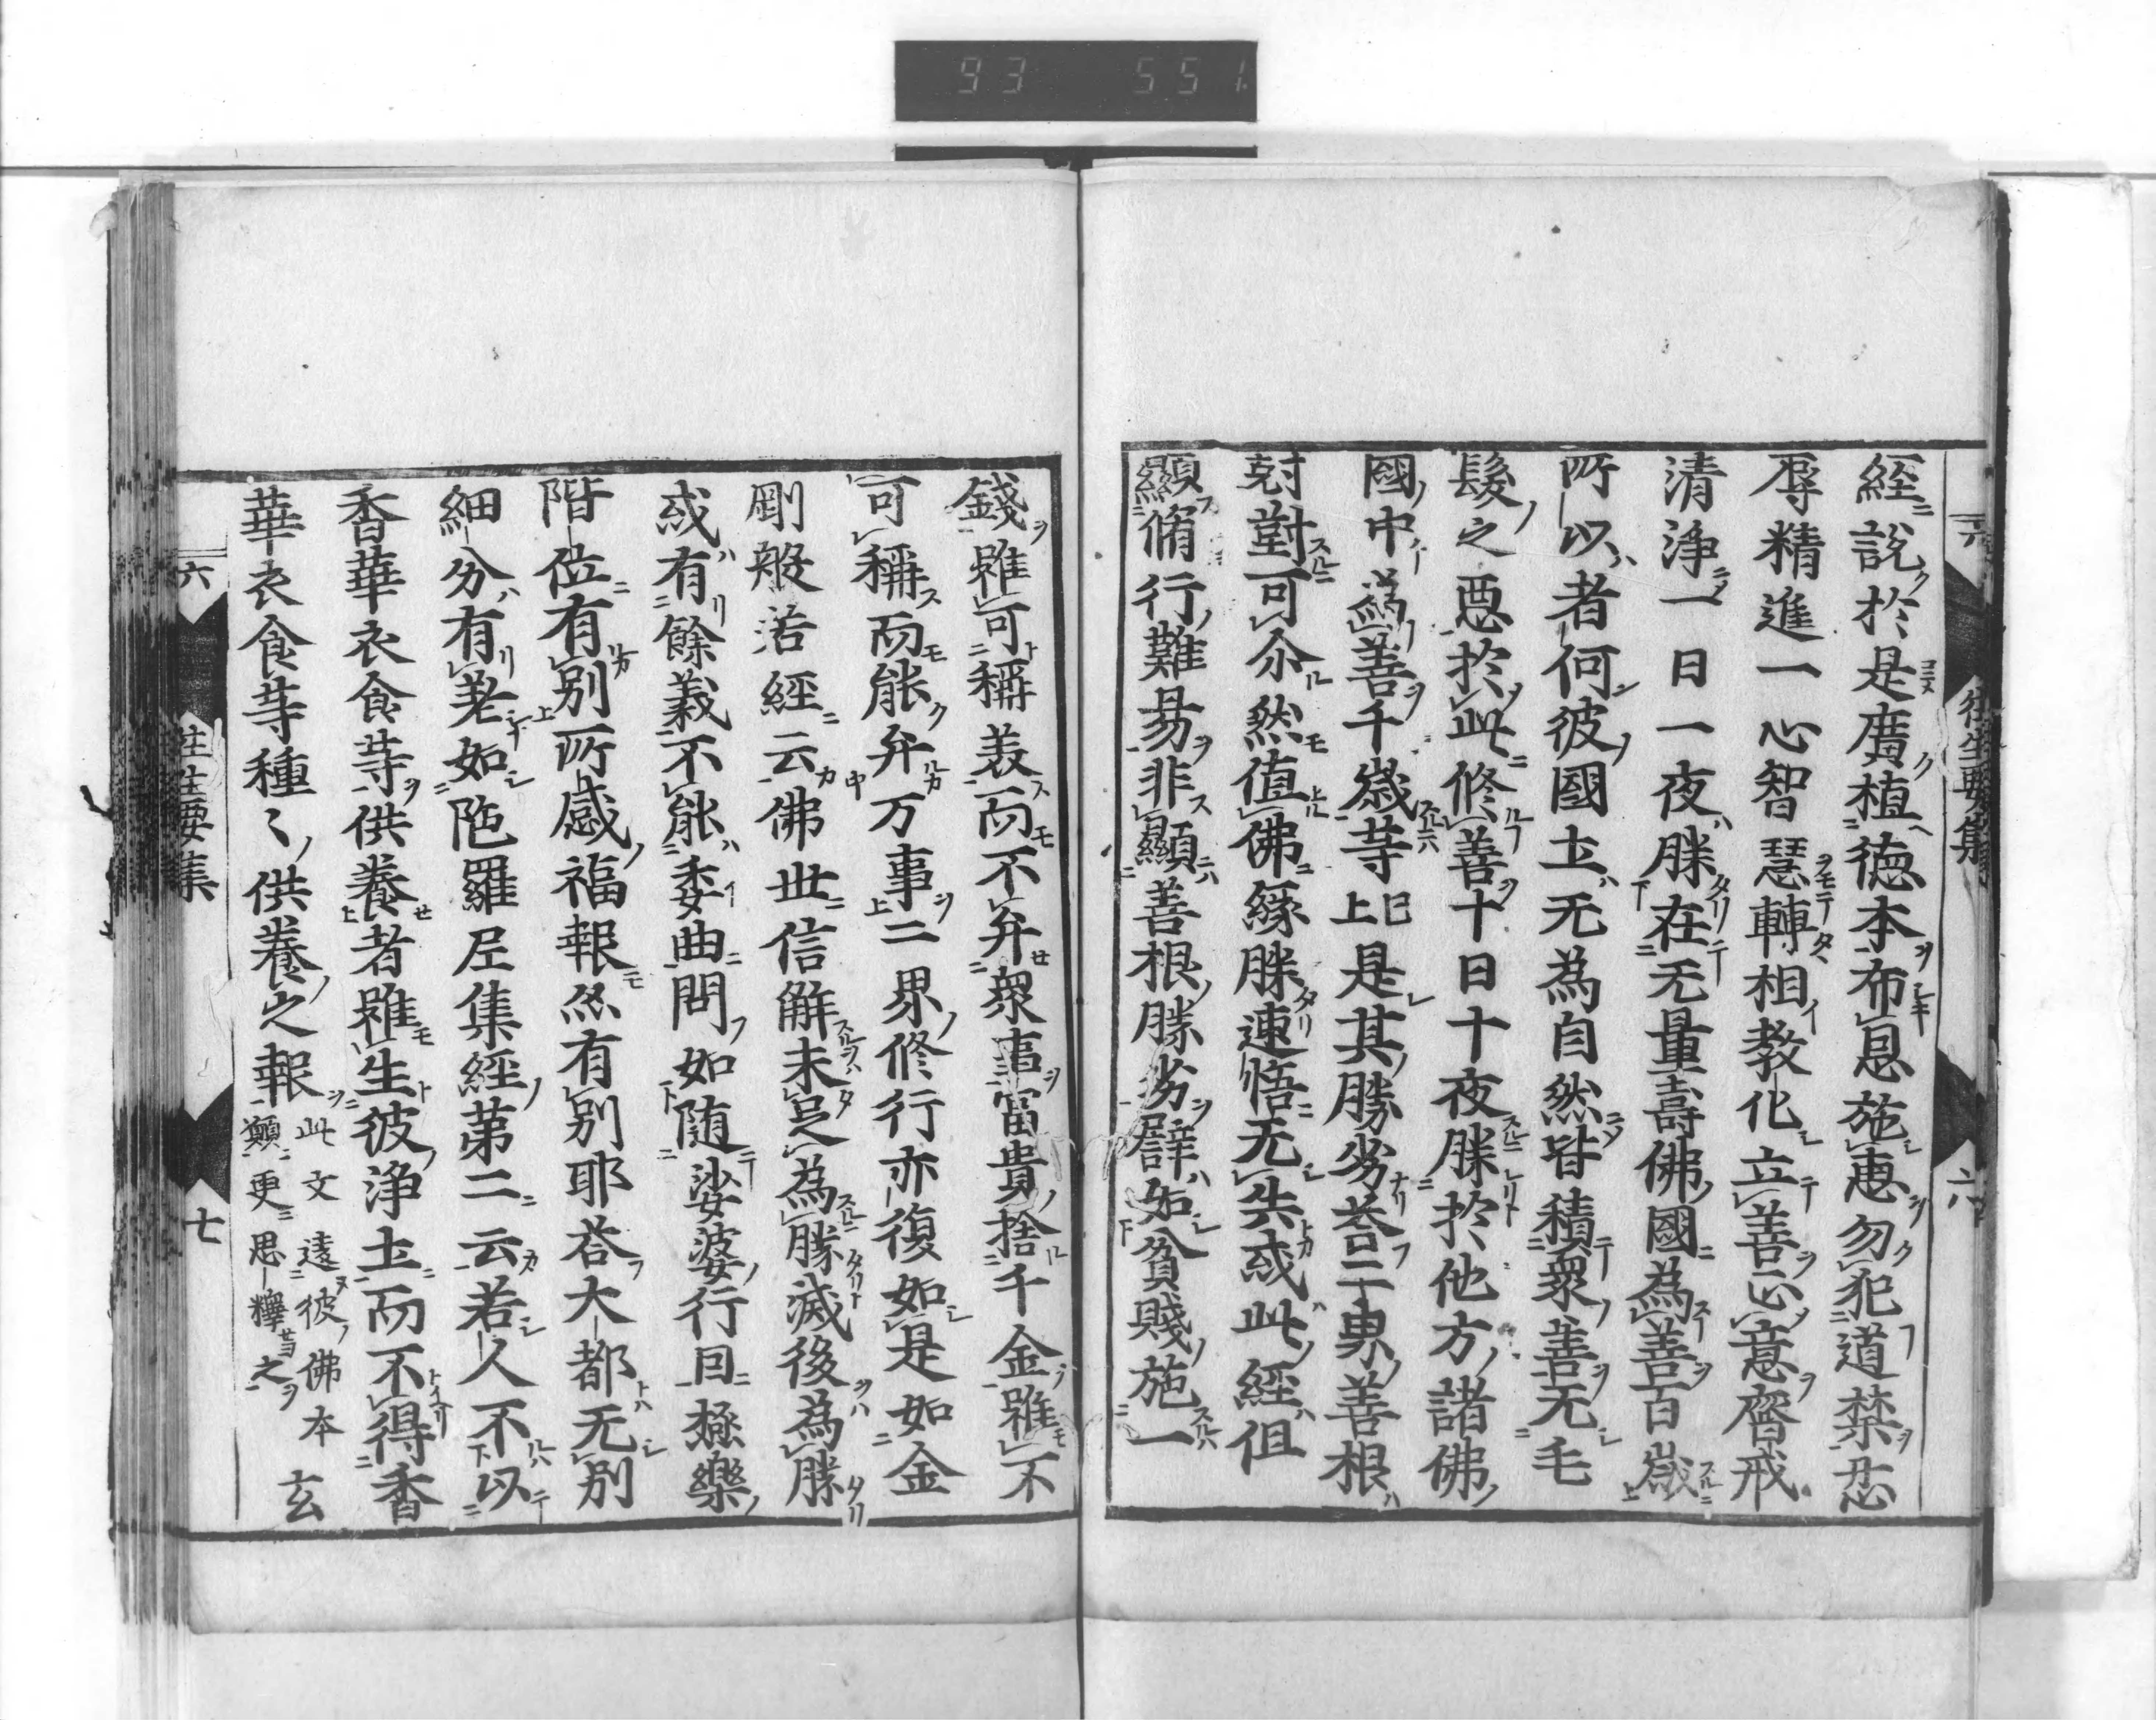 93 551
六 往生要集 六
經說於是廣植德本布恩施惠勿犯道禁忍
辱精進一心智慧轉相教化立善正意齋戒
清淨一日一夜勝在无量壽佛國為善百歲
所以者何彼國土无為自然皆積衆善无毛
髮之惡於此修善十日十夜勝於他方諸佛
國中為善千歲等已上是其勝劣答二界善根
尅對可尒然值佛緣勝速悟无失或此經但
顯脩行難易非顯善根勝劣譬如貧賤施一
錢雖可稱義而不弁衆事富貴捨千金雖不
可稱而能弁万事二界修行亦復如是如金
剛般若經云佛世信解未足為勝滅後為勝
或有餘義不能委曲問如随娑婆行因極樂
階位有別所感福報亦有別耶答大都无別
細分有差如陁羅尼集經第二云若人不以
香華衣食等供養者雖生彼淨土而不得香
華衣食等種〻供養之報此文違彼佛本
願更思擇之 玄
六 往生要集 七